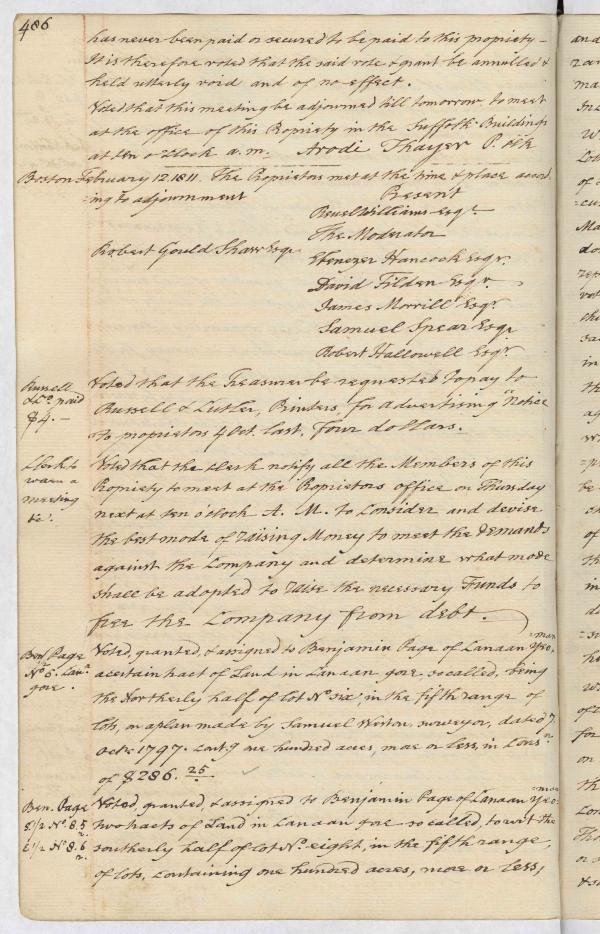 486
has never been paid or secured to be paid to this propriety –
It is therefore voted that the said vote & grant be annulled &
held utterly void and of no effect.
Voted that this meeting be adjourned till tomorrow to meet
at the office of this Propriety in the Suffolk Buildings
at ten o'Clock a.m. Arodi Thayer P. Clk
Boston February 12. 1811. The Proprietors met at the time & place accord-
ing to adjournment Present
Reuel Williams Esqr.
The Moderator
Robert Gould Shaw Esqr
Ebenezer Hancock Esqr.
David Tilden Esqr.
James Morrill Esqr.
Samuel Spear Esqr
Robert Hallowell Esqr.
Russell
& Co. paid
$4. –
Voted that the Treasurer be requested to pay to
Russell & Cutler, Printers, for advertising Notice
to proprietors 4 Oct. last. four dollars.
Clerk to
warn a
meeting
&c.
Voted that the Clerk notify all the Members of this
Propriety to meet at the Proprietors office on Thursday
next at ten o'clock A. M. to Consider and devise
the best mode of raising Money to meet the demands
against the Company and determine what mode
shall be adopted to raise the necessary Funds to
free the Company from debt.
Ben Page
No. 6. Can.
gore.
Voted, granted, & assigned to Benjamin Page of Canaan Yeo,
=man
a certain tract of Land in Canaan gore so called, being
the Northerly half of lot No. six, in the fifth range of
lots, on a plan made by Samuel Weston, surveyor, dated 7.
Octr. 1797. Cont.g one hundred acres, more or less, in Cons.n
of $286. 25
Ben. Page
S. 1/2 No. 8. 5
E 1/2 No 8. 6
Voted, granted, & assigned to Benjamin Page of Canaan Yeo=
=man
two tracts of Land in Canaan gore so called, to wit the
southerly half of lot No. eight, in the fifth range,
of lots, containing one hundred acres, more or less,